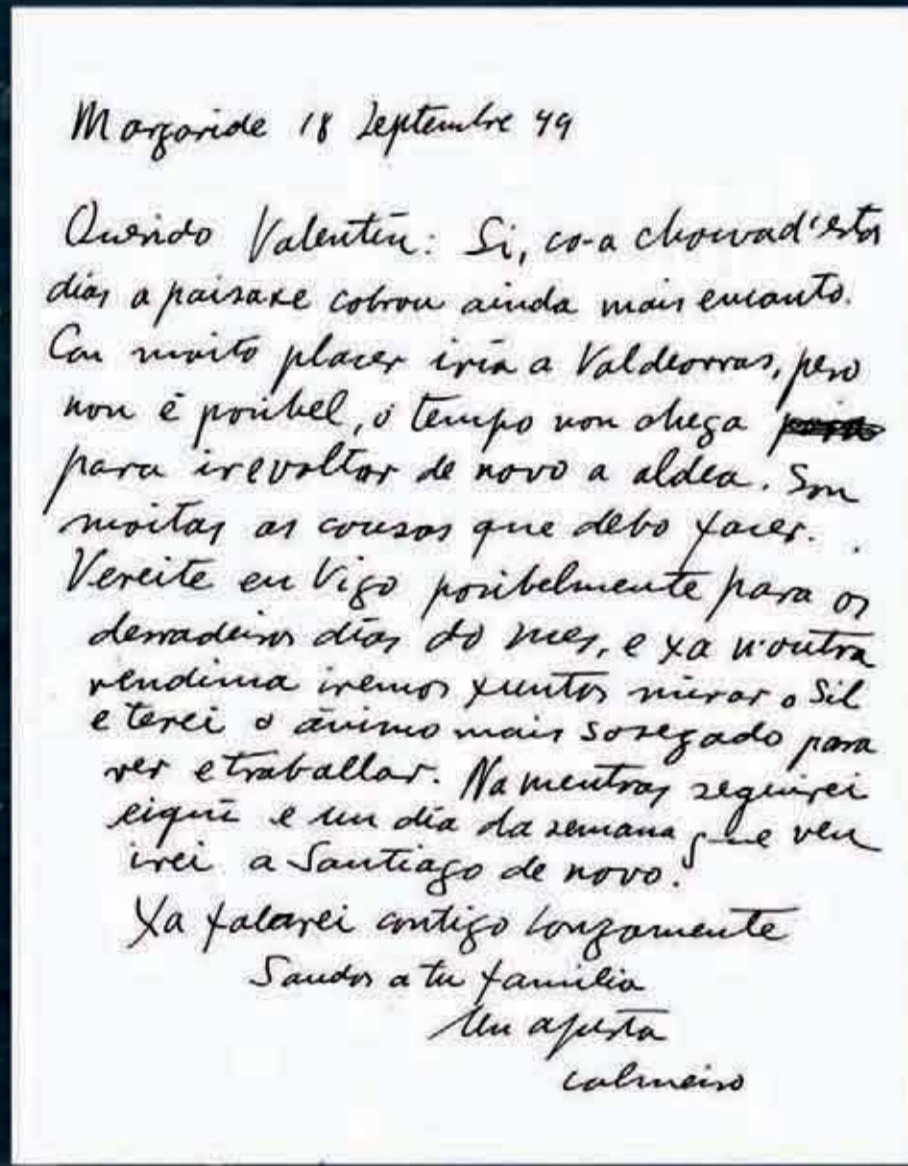 Margaride 18 Septembre 49
Querido Valentín: Si, co-a chouvad'estos
días a paisaxe cobrou ainda mais encanto.
Con moito placer iría a Valdeorras, pero
non é posibel, o tempo non chega
para irevoltar de novo a aldea. Son
moitas as cousas que debo facer.
Vereite en Vigo posibelmente para os
derradeiros días do mes, e xa n-outra
vendima iremos xuntos mirar o Sil
e terei o ánimo mais sosegado para
ver e traballar. Namentras seguirei
eiquí e un día da semana que ven
irei a Santiago de novo.
Xa falarei contigo longamente
Saudos a tu familia
Un aperta
colmeiro